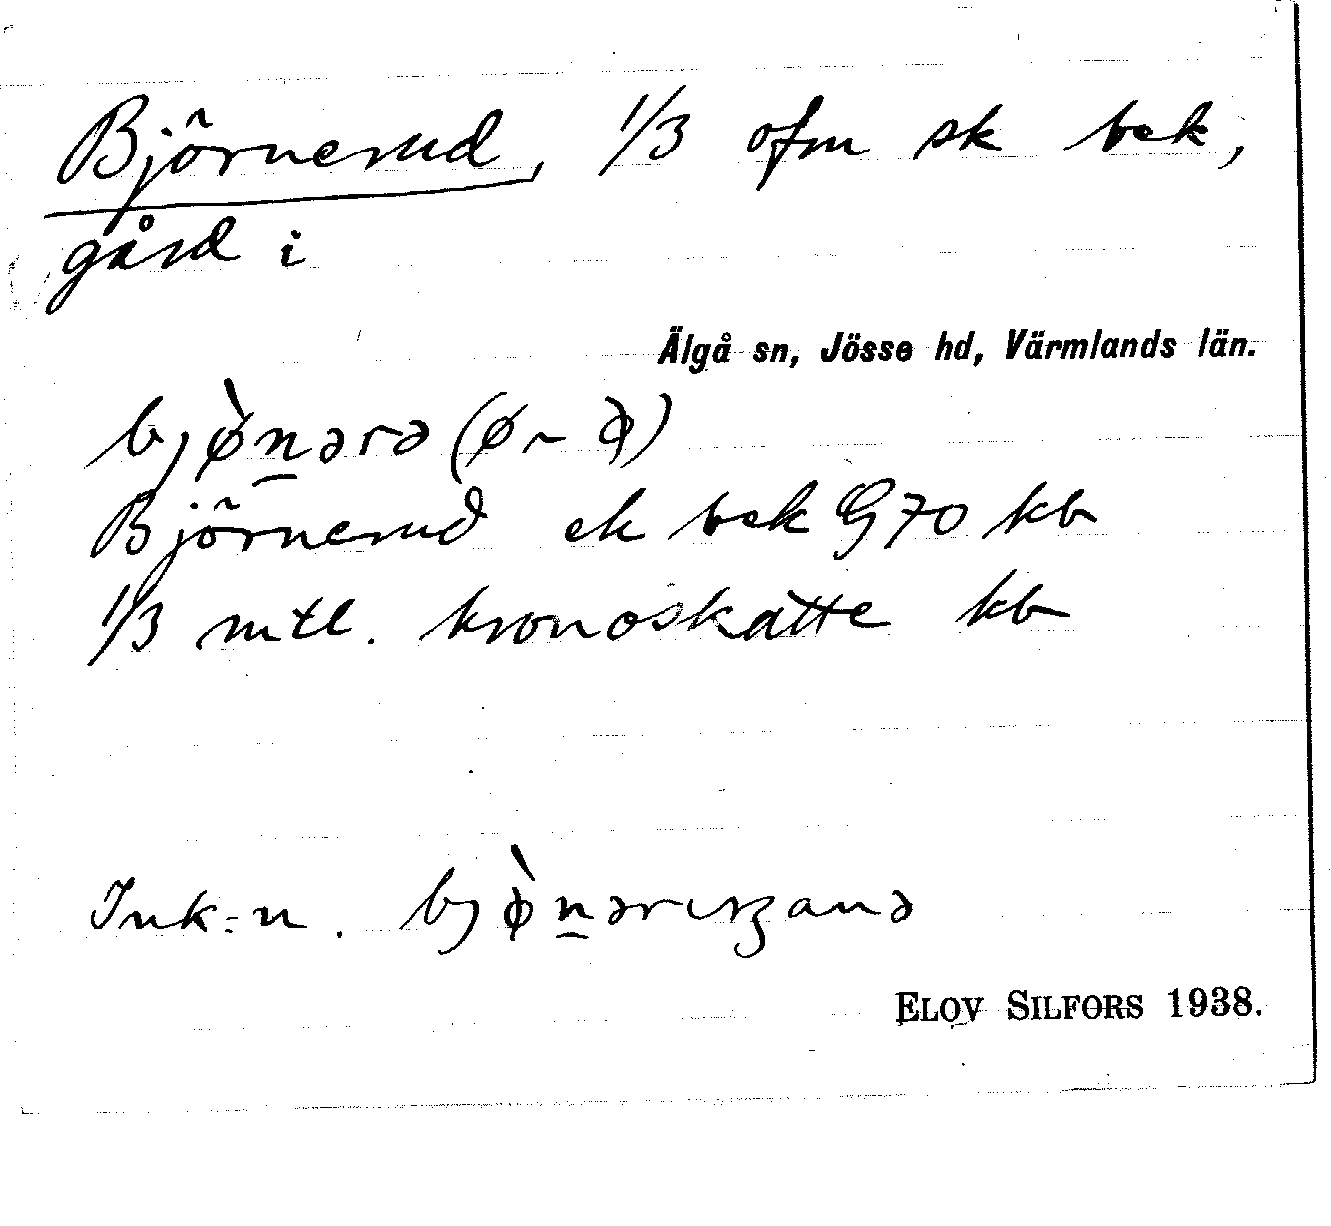 Björnerud, 1/3 ofm sk bek,
gård i
Älgå sn, Jösse hd, Värmlands län.
bjø̀n̠ərə (ø ~
Björnerud ek bek G70 kb
1/3 mtl. kronoskatte kb
Ink:n.
ELOV SILFORS 1938.